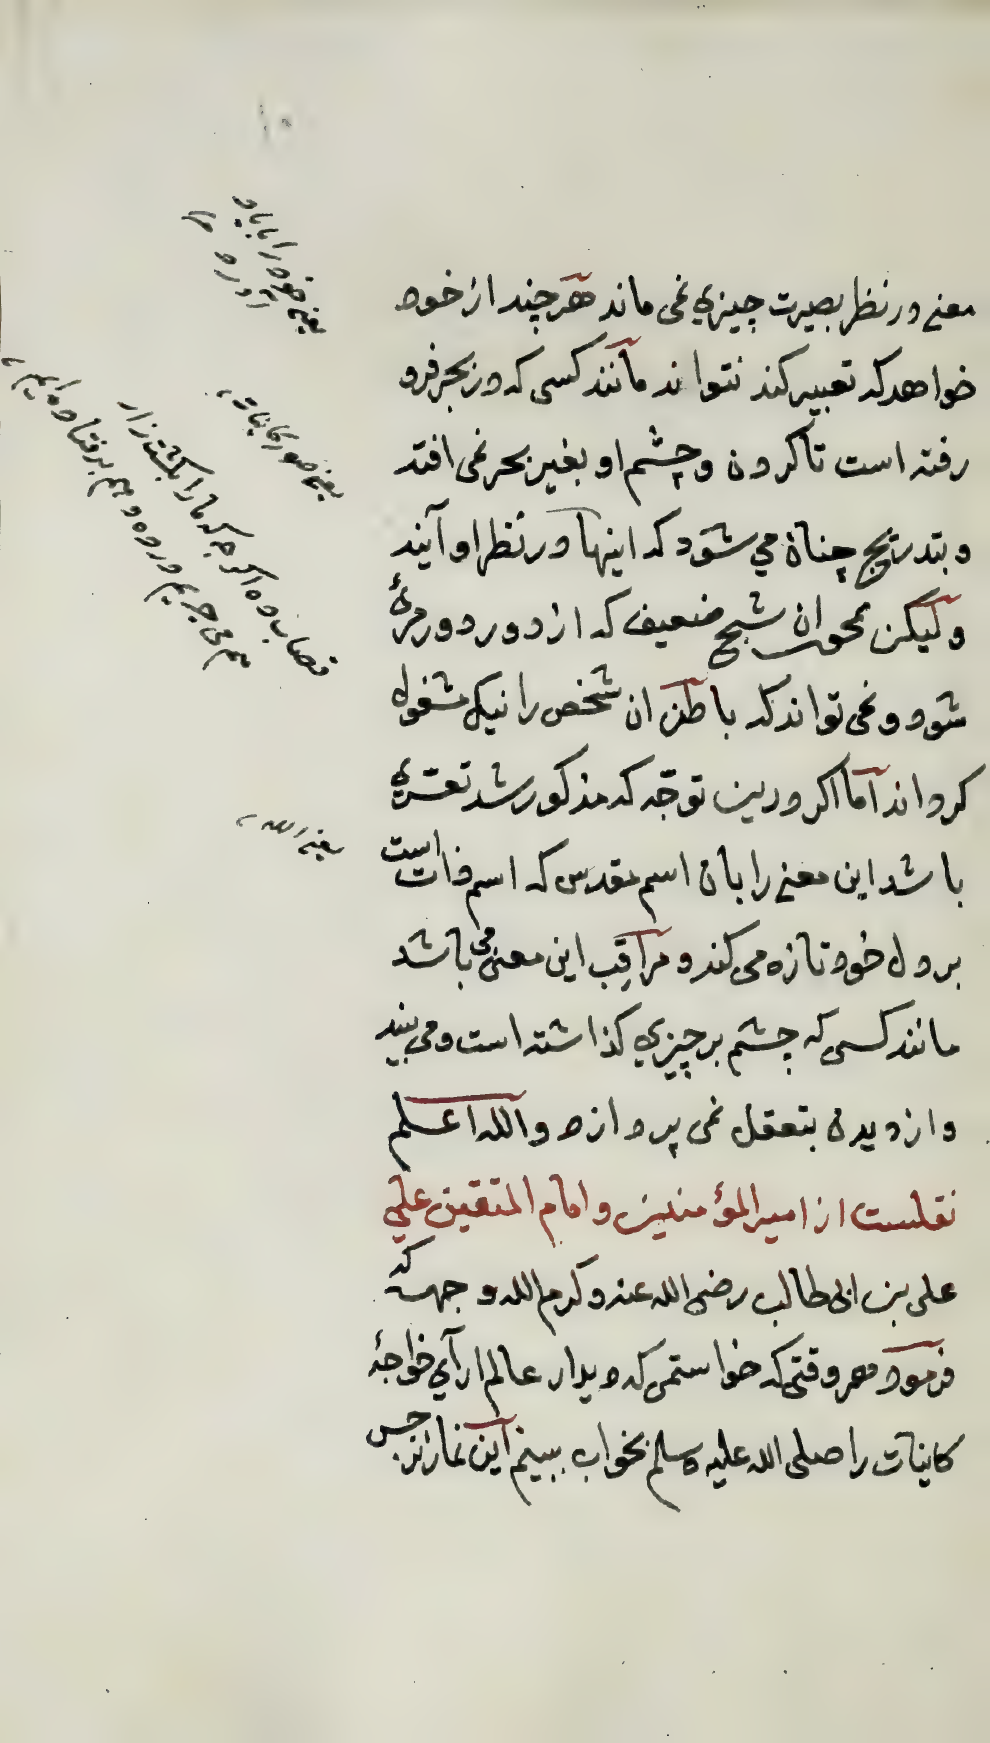 معنے در نظر بصیرت چیزي نمی ماند هر چند از خود
خواهد که تعبیر کند نتواند مانند کسی که در بحر فرو
رفته است تا کردن و چشم او بغیر بحر نمی افتد
و بتدریج چنان می شود که اینها در نظر او آیند
و لیکن نحوان شبح ضعیف که از دور دور مرئ
شود و نمی تواند که باطن ان شخص را نیک مشغول
کرداند اما اکر درین توجّه که مذکور شد تفرقه
باشد این معنے را بان اسم مقدس که اسم ذات است
بر دل خود تازه می کند و مراقب این معنی می باشد
مانند کسی که چشم بر چیزي کذاشته است و می بیند
و از دیدن بتعقل نمی پردازد واللہ اعلم
نقلست از امیر المؤمنین و امام المتقین علي
علی بن ابی طالب رضی الله عنه و کرم الله وجهه که
فرمود هر وقتی که خواستمی که دیدار عالم ارآي خواجهٔ
کاینات را صلی الله علیه وسلم بخواب بینم این نماز
یعنے خود را بیاد
آورد
یعنے صور کاینات
قصاب ده اکر چه که ما را بکشتہ زار
هم می چریم در ده و هم بر فتاده ایم
یعنے الله